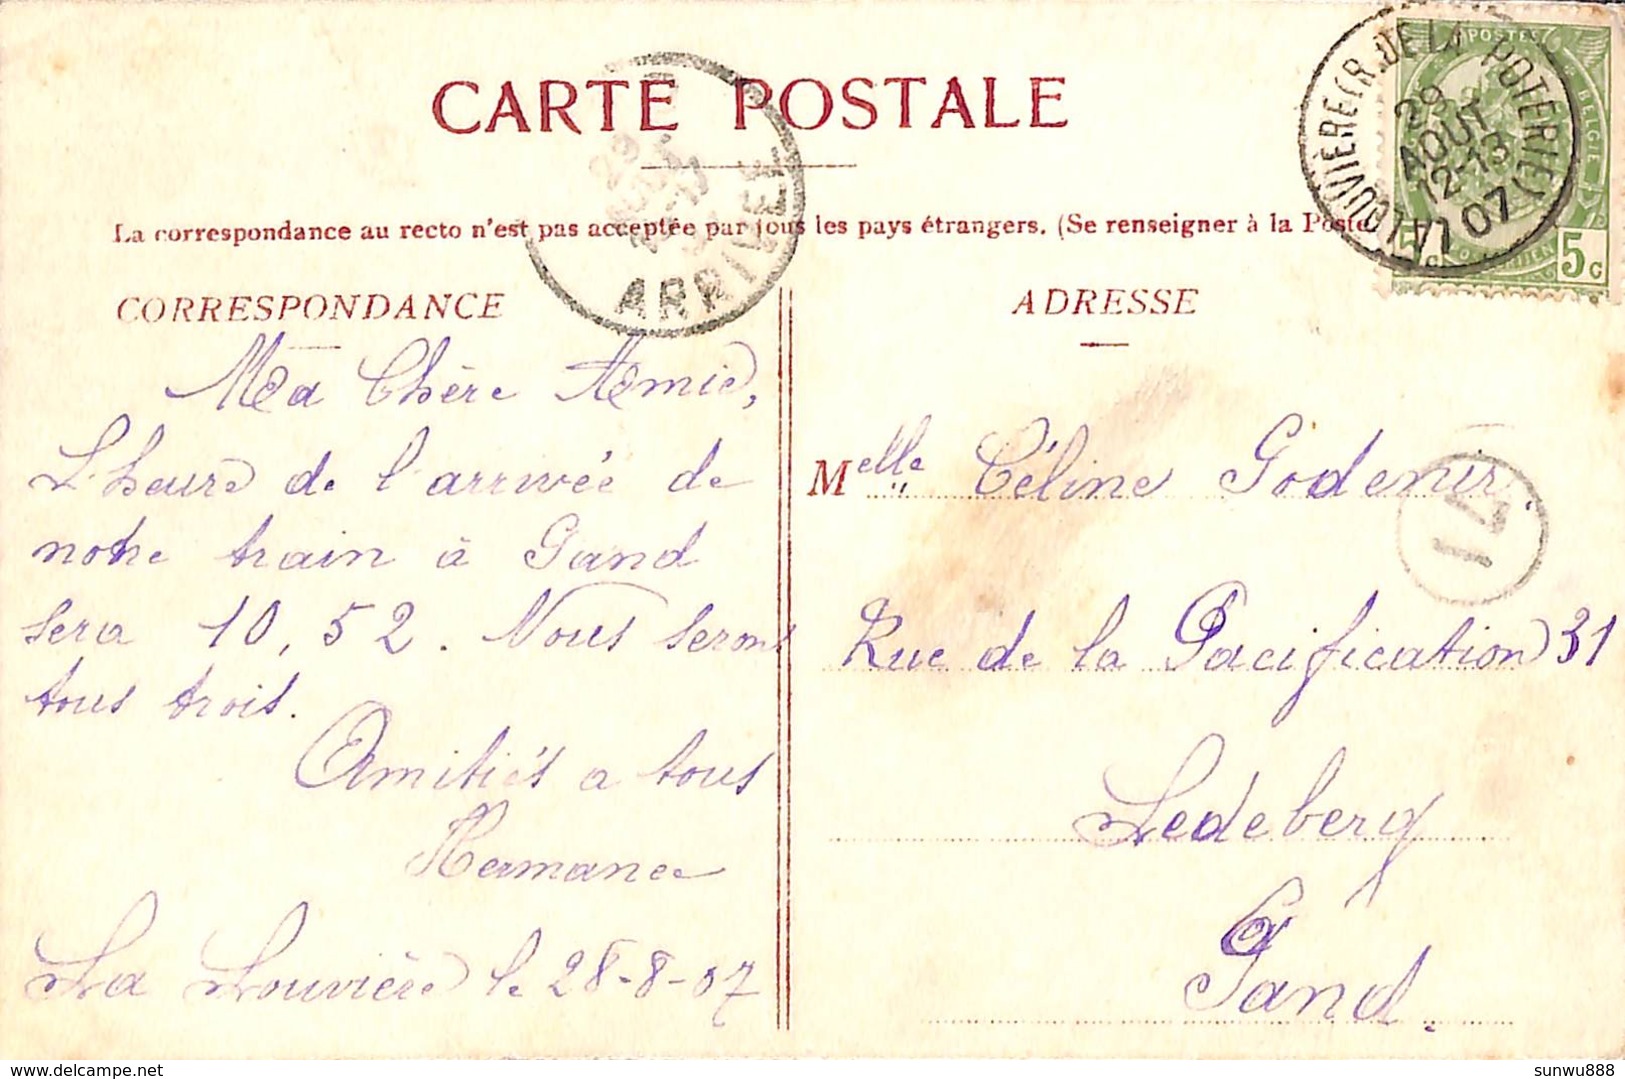 CARTE POSTALE
La correspondance au recto n'est pas acceptée par tous les pays étrangers. (Se renseigner à la Poste
CORRESPONDANCE
Ma Chère Amie,
L'heure de l'arrivée de
notre train à Gand
sera 10,52. Nous serons
tous trois.
Amitiés a tous
Hermance
La Louvière le 28-8-07
ADRESSE
Melle Céline Godenir.
Rue de la Pacification 31
Ledeberg
Gand.
LA LOUVIÈRE (R. DE LA POTERIE)
29
AOUT
12-13
07
POSTES
BELGIE
5 c
5 c
ARRIVÉE
14
delcampe.net
sunwu888